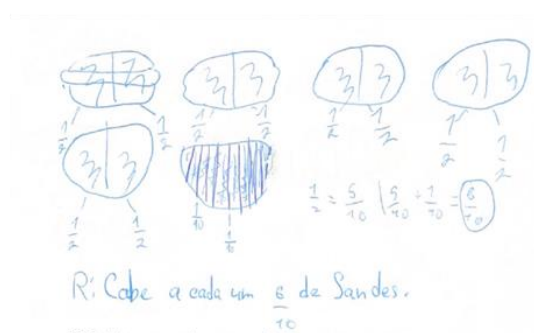 1/2 1/2 1/2 1/2 1/2 1/2 1/2 1/2
1/2 1/2 1/10 1/10
1/2 = 5/10 | 5/10 + 1/10 = 6/10
R: Cabe a cada um 6/10 de Sandes.